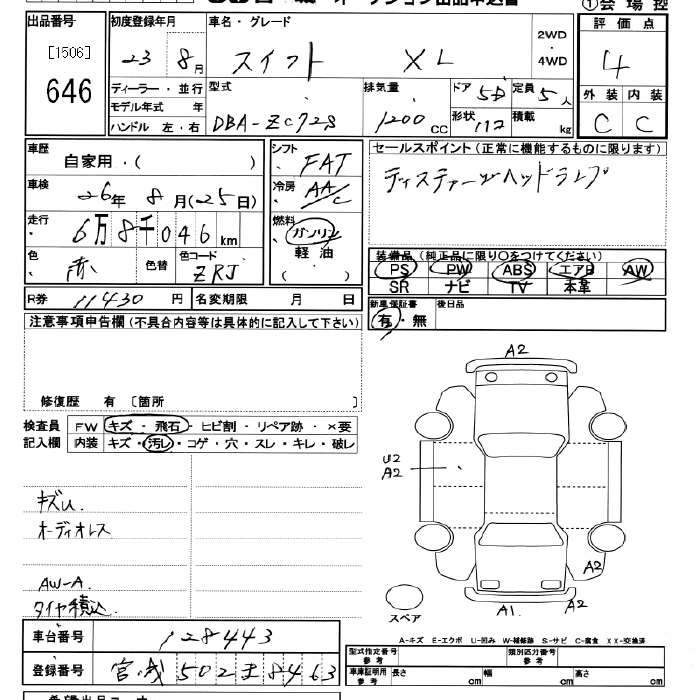 ①会場控
出品番号 初度登録年月 車名・グレード 評価点
[1506] 23 8月 スイフト XL 2WD・4WD 4
646 ディーラー・並行 型式 排気量 ドア 5D 定員 5人 外装 内装
モデル年式 年
ハンドル 左・右 DBA-ZC72S 1200cc 形状 112 積載 kg C C
車歴 自家用・( ) シフト FAT セールスポイント(正常に機能するものに限ります)
車検 26年8月(25日) 冷房 AA/C ディスチャージヘッドランプ
走行 6万8千046km 燃料 ガソリン
軽油
( )
色 赤 色替 色コード ZRJ 装備品(純正品に限り○をつけてください)
PS PW ABS エアB AW
SR ナビ TV 本革
R券 11430円 名変期限 月 日 新車保証書 後日品
有・無
注意事項申告欄(不具合内容等は具体的に記入して下さい)
修復歴 有 [箇所 ]
検査員 FW キズ・飛石・ヒビ割・リペア跡・×要
記入欄 内装 キズ・汚レ・コゲ・穴・スレ・キレ・破レ
キズU
オーディオレス
AW-A.
タイヤ積込
A2
U2
A2
A2
A1
A2
スペア
A-キズ E-エクボ U-凹み W-補修跡 S-サビ C-腐食 XX-交換済
車台番号 128443
登録番号 宮城502ま8463
型式指定番号 参考 類別区分番号 参考
車庫証明用 参考 長さ cm 幅 cm 高さ cm